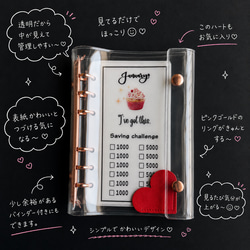 透明だから
中が見えて
管理しやすい〜♡
見てるだけで
ほっこり
このハートも
お気に入り♡
表紙かわいいと
つづける気に
なる〜♡
ピンクゴールドの
リングがきゅんと
する〜♡
少し余裕がある
バインダー付きにも
できます。
見るたび気分が
上がる〜
シンプルでかわいいデザイン♡
January
I've got this.
Saving challenge
1000 5000
1000 5000
1000 5000
1000 5000
1000 5000